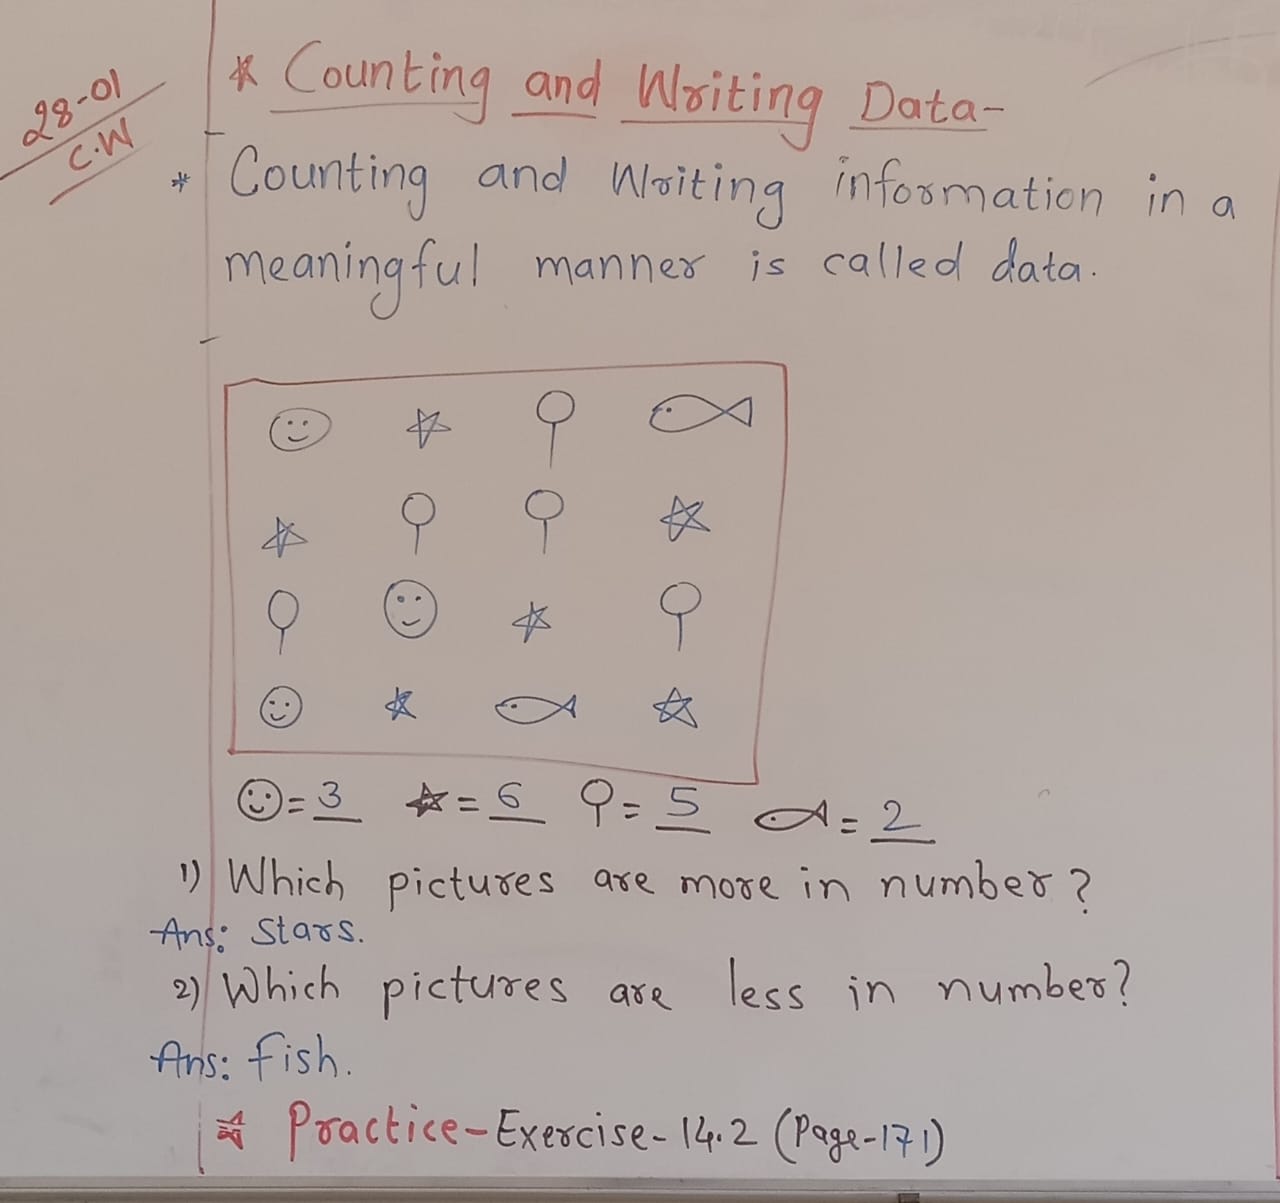 28-01
C.W
* Counting and Writing Data-
* Counting and Writing information in a
meaningful manner is called data.
= 3 = 6 = 5 = 2
1) Which pictures are more in number?
Ans: Stars.
2) Which pictures are less in number?
Ans: fish.
* Practice-Exercise-14.2 (Page-171)